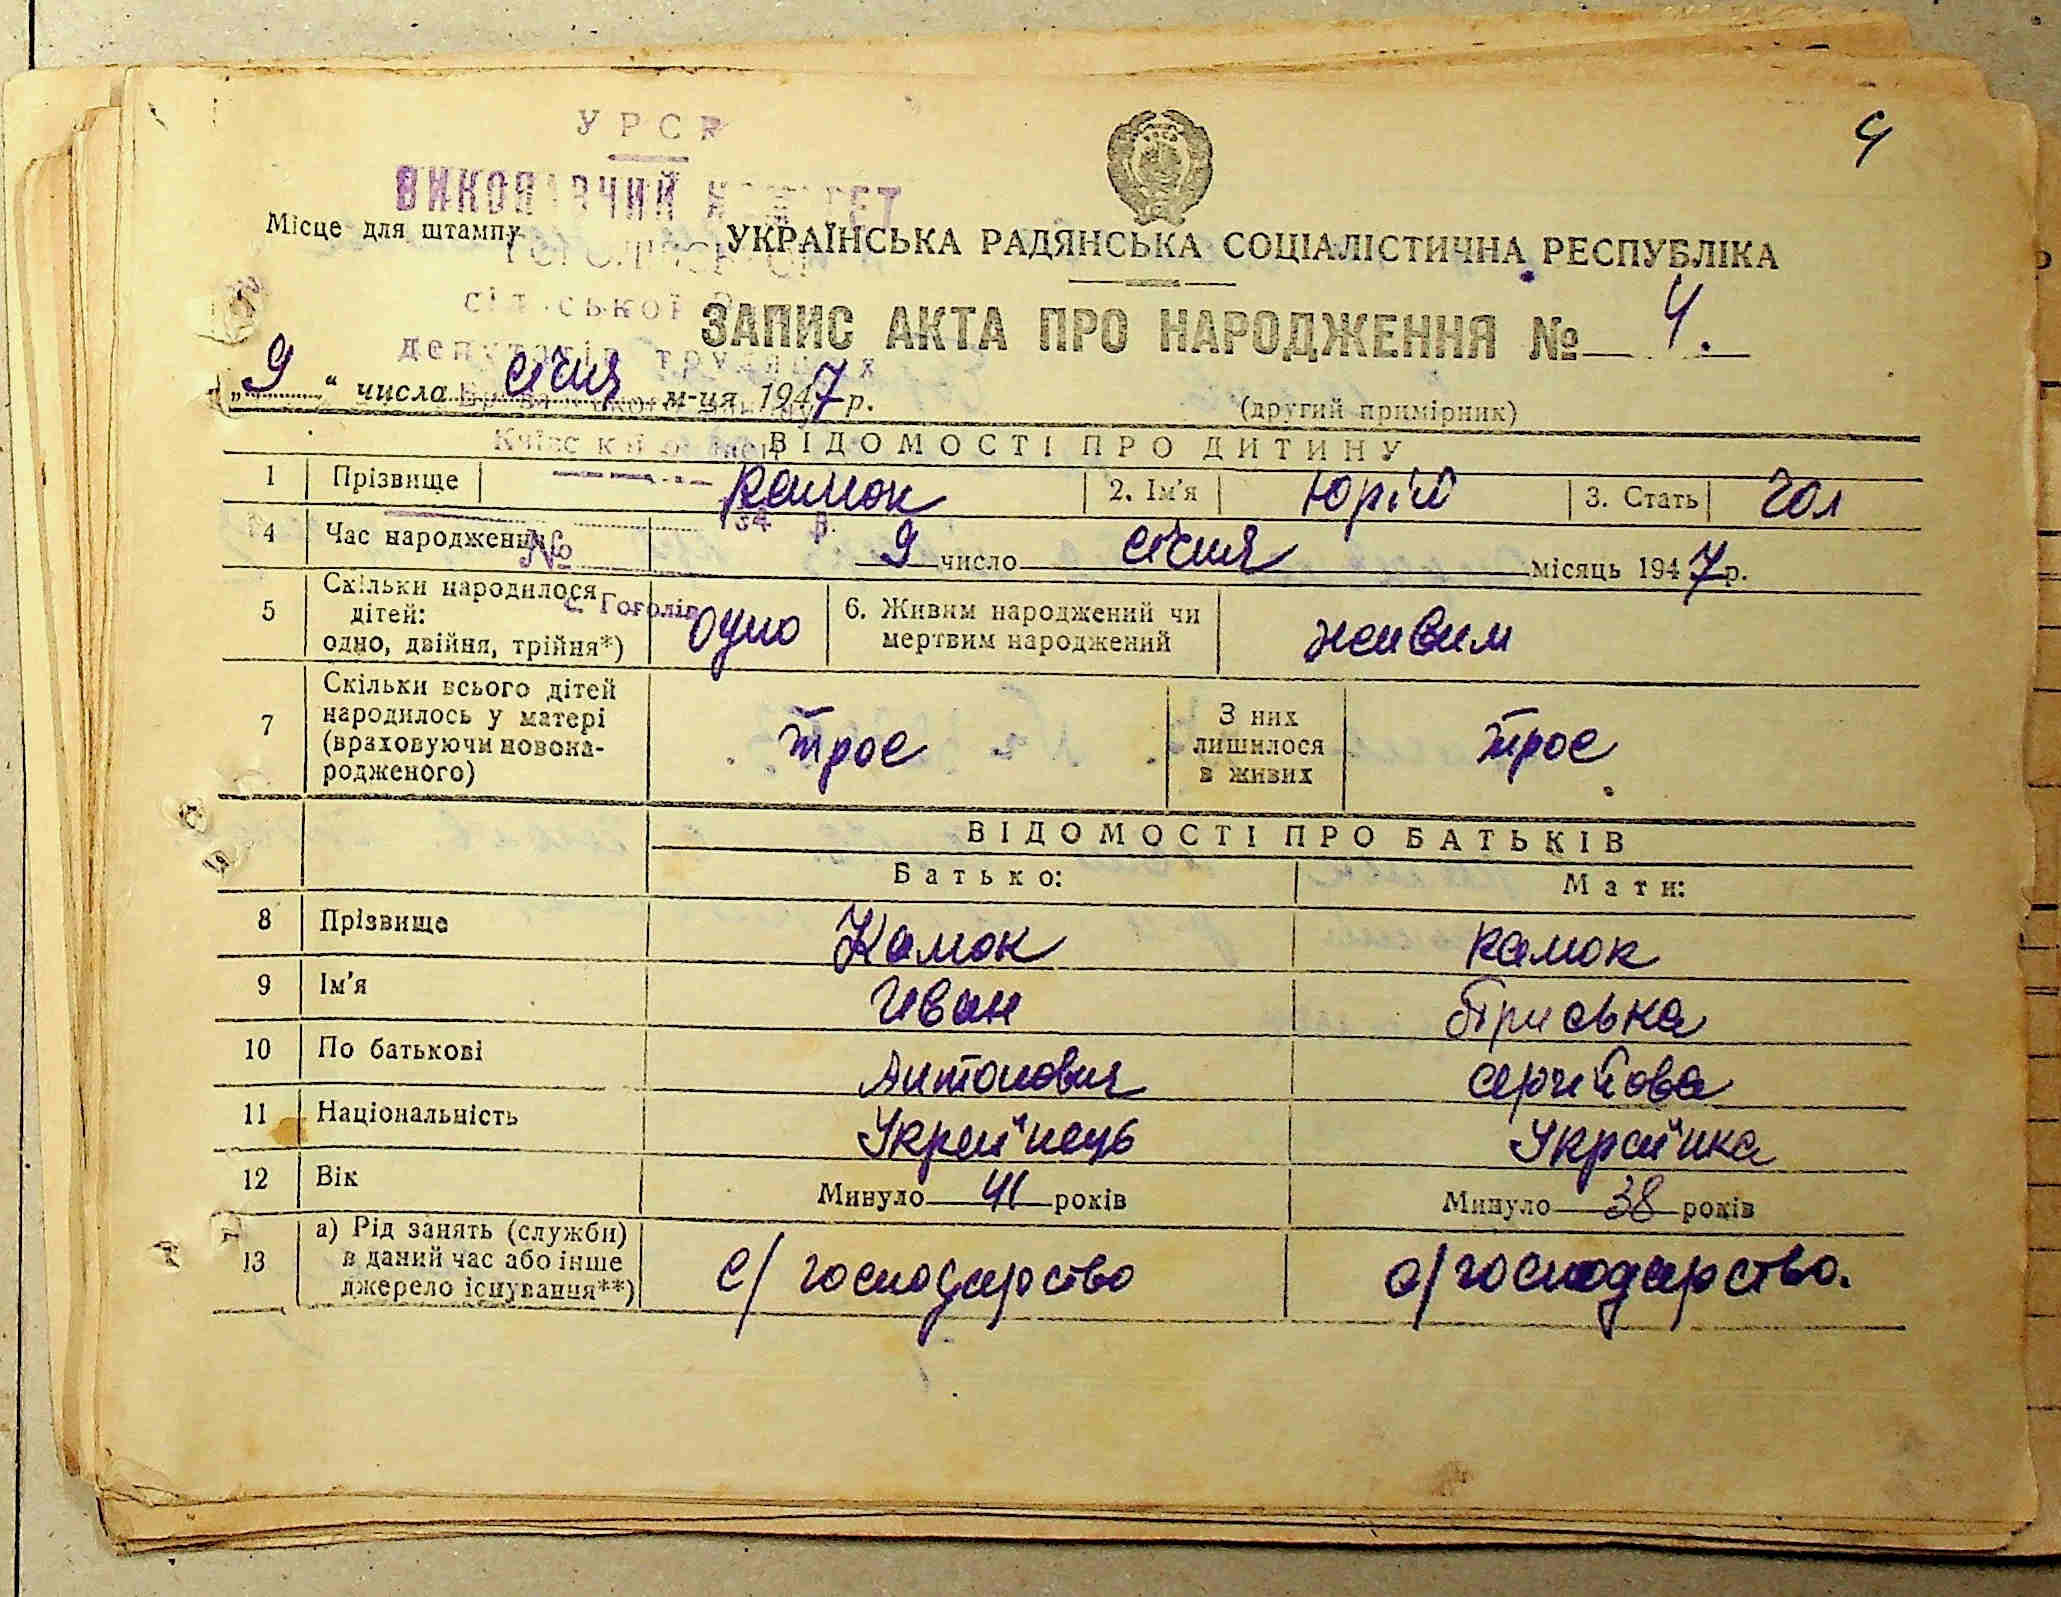 4
УРСР
ВИКОНАВЧИЙ КОМІТЕТ
Місце для штампу
УКРАЇНСЬКА РАДЯНСЬКА СОЦІАЛІСТИЧНА РЕСПУБЛІКА
сільської
ЗАПИС АКТА ПРО НАРОДЖЕННЯ № 4.
депутатів трудящих
„9“ числа січня м-ця 1947 р.
(другий примірник)
ВІДОМОСТІ ПРО ДИТИНУ
1 Прізвище Камок 2. Ім'я Юрій 3. Стать Чол
4 Час народження 9 число січня місяць 1947 р.
№
с. Гоголів
5 Скільки народилося дітей: одно, двійня, трійня*) одно 6. Живим народжений чи мертвим народжений живим
7 Скільки всього дітей народилось у матері (враховуючи новонародженого) троє З них лишилося в живих троє
ВІДОМОСТІ ПРО БАТЬКІВ
Батько: Мати:
8 Прізвище Камок Камок
9 Ім'я Иван Пріська
10 По батькові Антонович Сергийова
11 Національність Українець Українка
12 Вік Минуло 41 років Минуло 38 років
13 а) Рід занять (служби) в даний час або інше джерело існування**) с/господарство с/господарство.